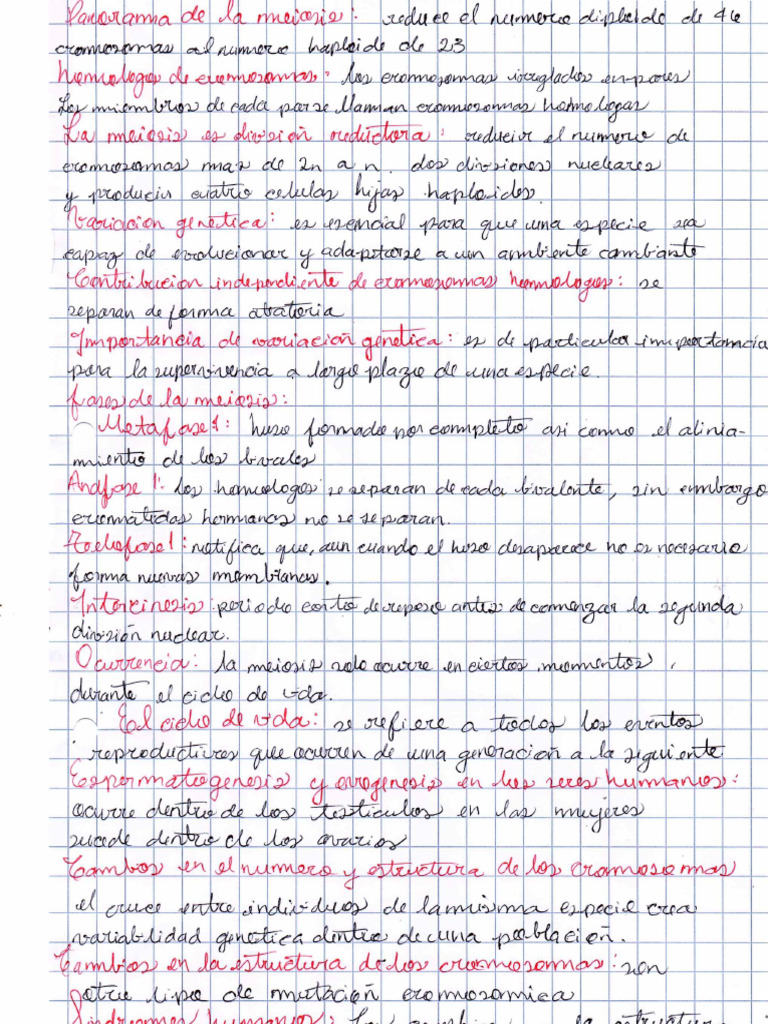 Panorama de la meiosis: reduce el numero diploide de 46
cromosomas al numero haploide de 23
homologos de cromosomas: los cromosomas irreglados en pares
Los miembros de cada par se llaman cromosomas homologas
La meiosis es división reductora: reducir el numero de
cromosomas mas de 2n a n. dos divisiones nucleares
y producir cuatro celulas hijas haploides.
Variacion genética: es esencial para que una especie sea
capaz de evolucionar y adaptarse a un ambiente cambiante
Contribucion independiente de cromosomas homologos: se
separan de forma aleatoria
Importancia de variación genetica: es de particular importancia
para la supervivencia a largo plazo de una especie.
fases de la meiosis:
Metafase 1: huso formado por completo asi como el alinia-
miento de los
Anafase 1: Los homologos se separan de cada bivalente, sin embargo
cromatidas hermanas no se separan.
Teelofase 1: notifica que, aun cuando el huso desaparece no es necesario
forma nuevas membranas.
Intercinesis: periodo corto de reposo antes de comenzar la segunda
división nuclear.
Ocurrencia: la meiosis solo ocurre en ciertos momentos
durante el ciclo de vda.
El ciclo de vda: se refiere a todos los eventos
reproductivos que ocurren de una generación a la siguiente
Espermatogenesis y ovogenesis en los seres humanos:
ocurre dentro de los testiculos en las mujeres
sucede dentro de los ovarios
Cambos en el numero y estructura de los cromosomas
el cruce entre individuos de la misma especie crea
variabilidad genetica dentro de una población.
Cambios en la estructura de los cromosomas: son
otro tipo de mutación cromosomica
Sindromes humanos: Los la estructura